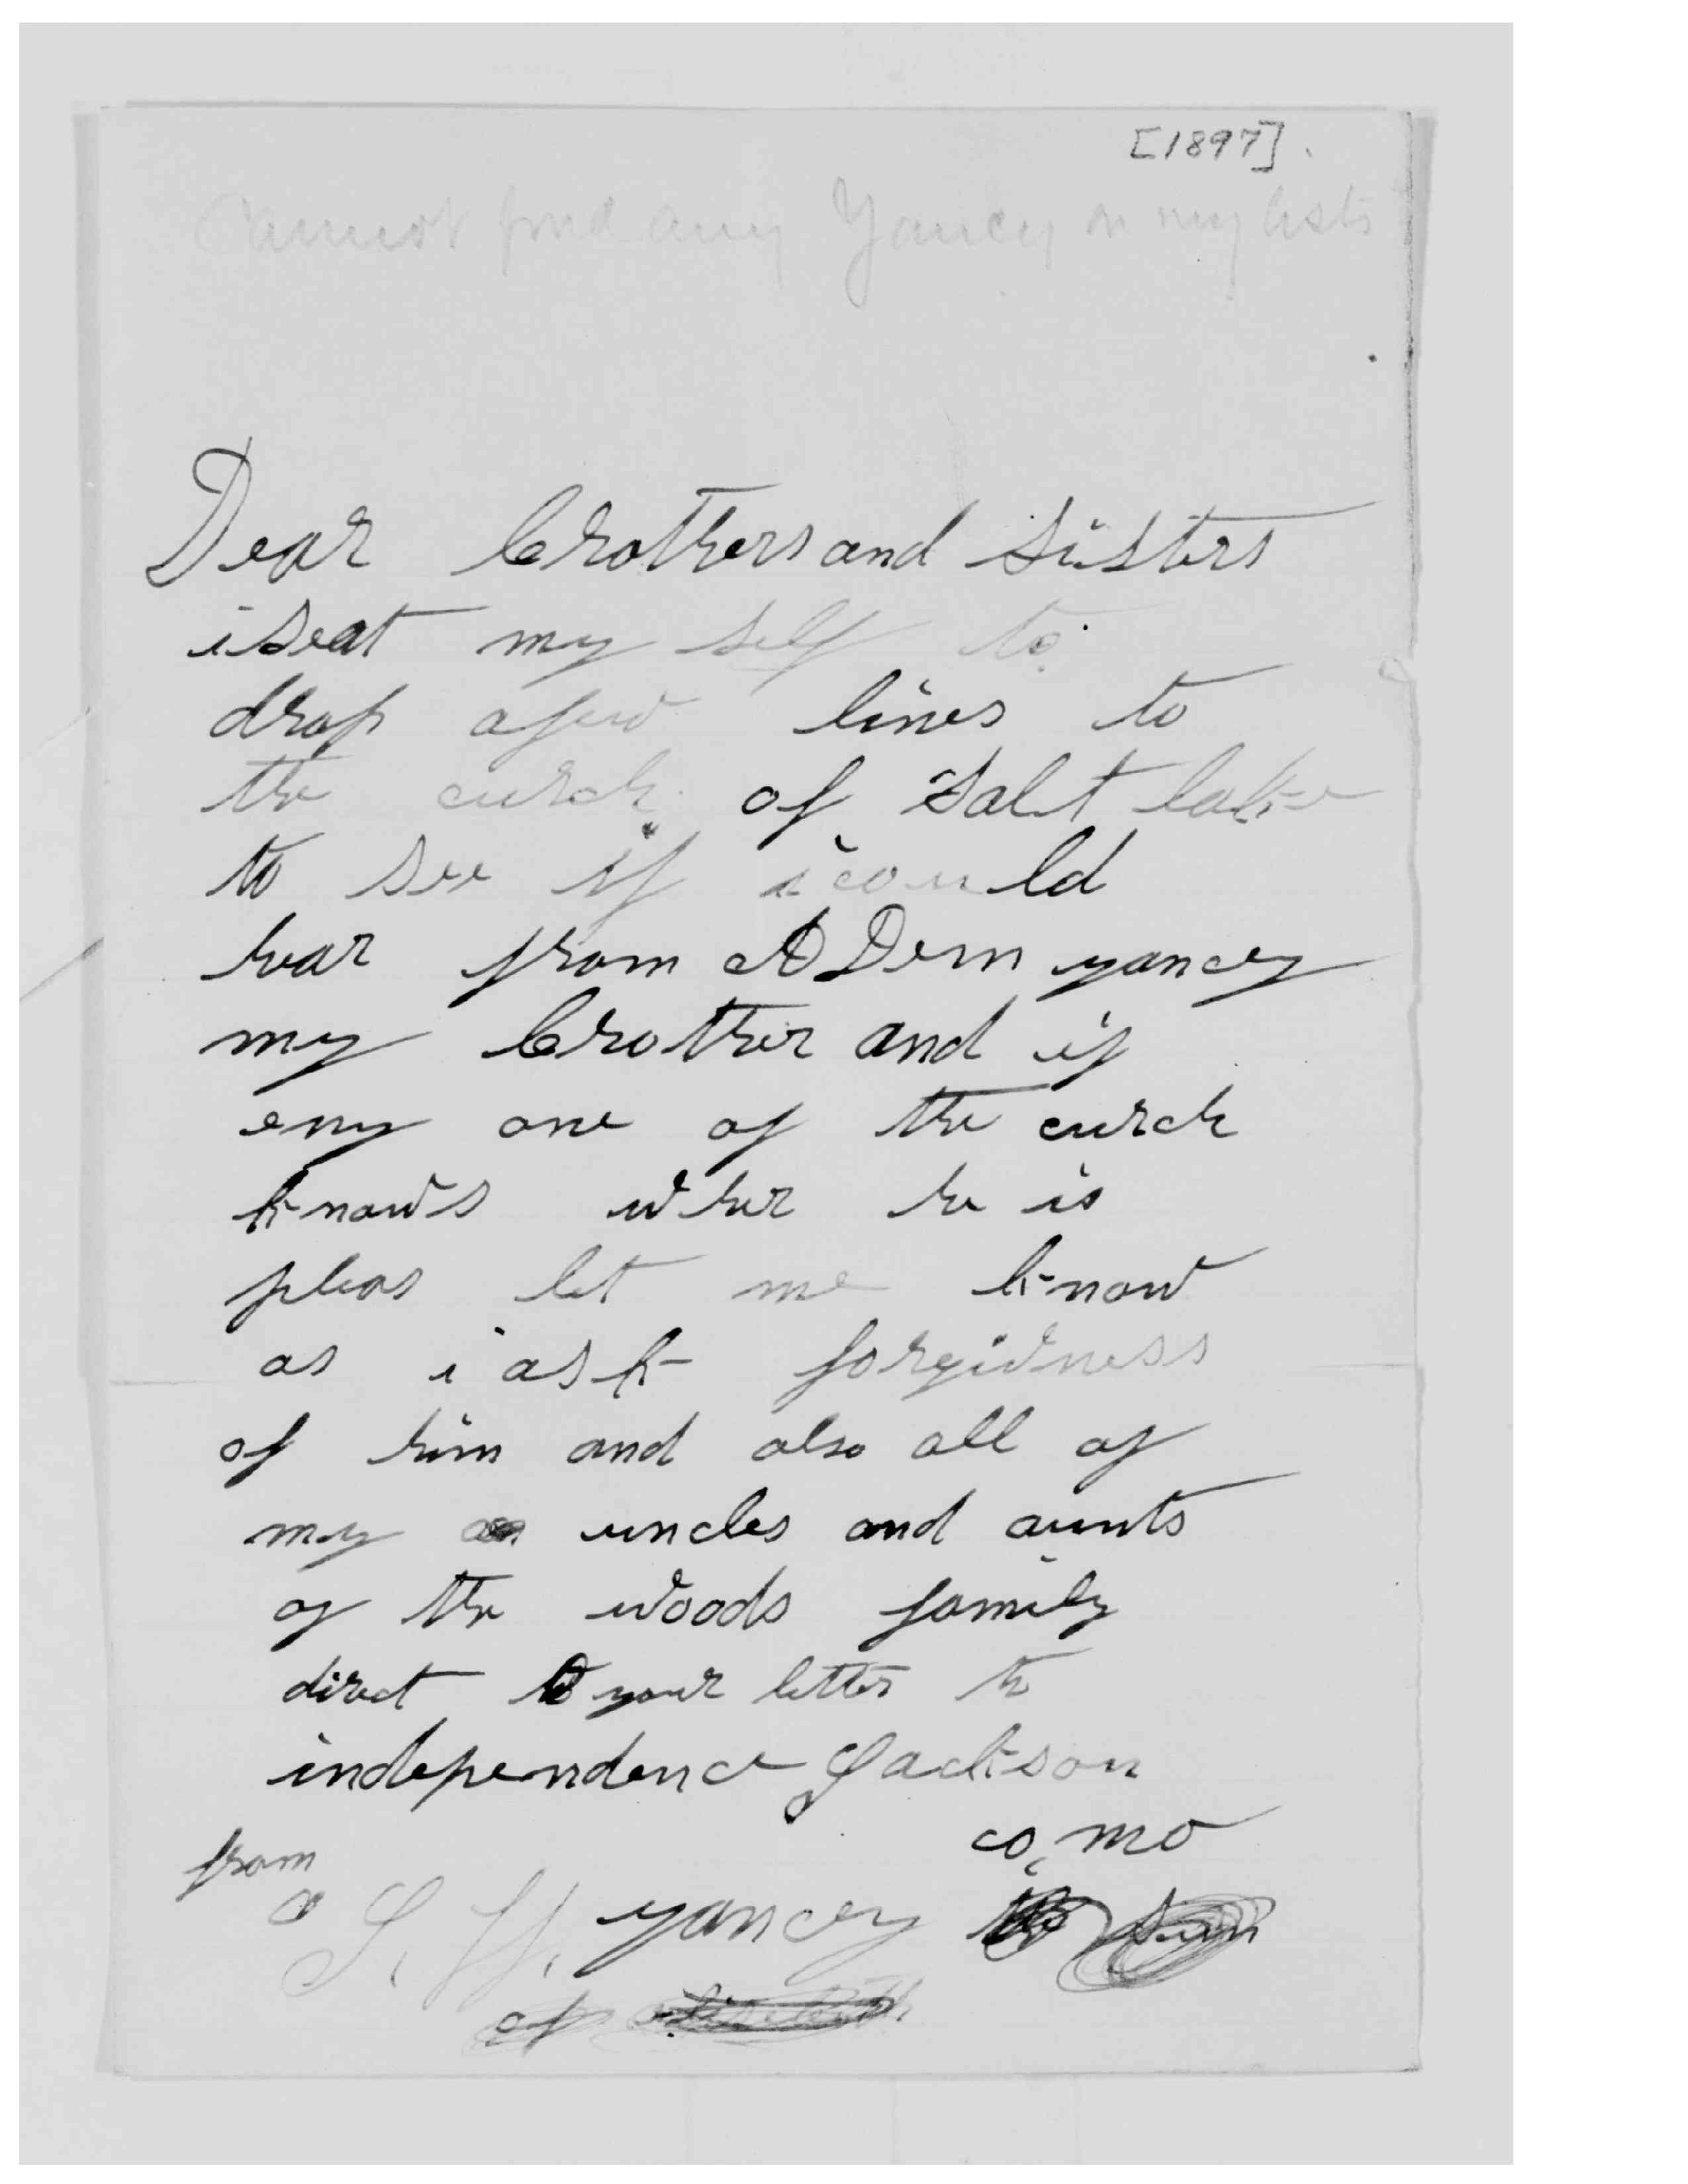 [1897].
Cannot find any Yancey on my lists
Dear brothers and sisters
i seat my self to
drop a few lines to
the curch of Salt lake
to see if i could
hear from A Dem yancey
my brother and if
eny one of the curch
knows wher he is
pleas let me know
as i ask forgivness
of him and also all of
my uncles and aunts
of the woods family
direct your letter to
independence Jackson
co, mo
from
yancey
of